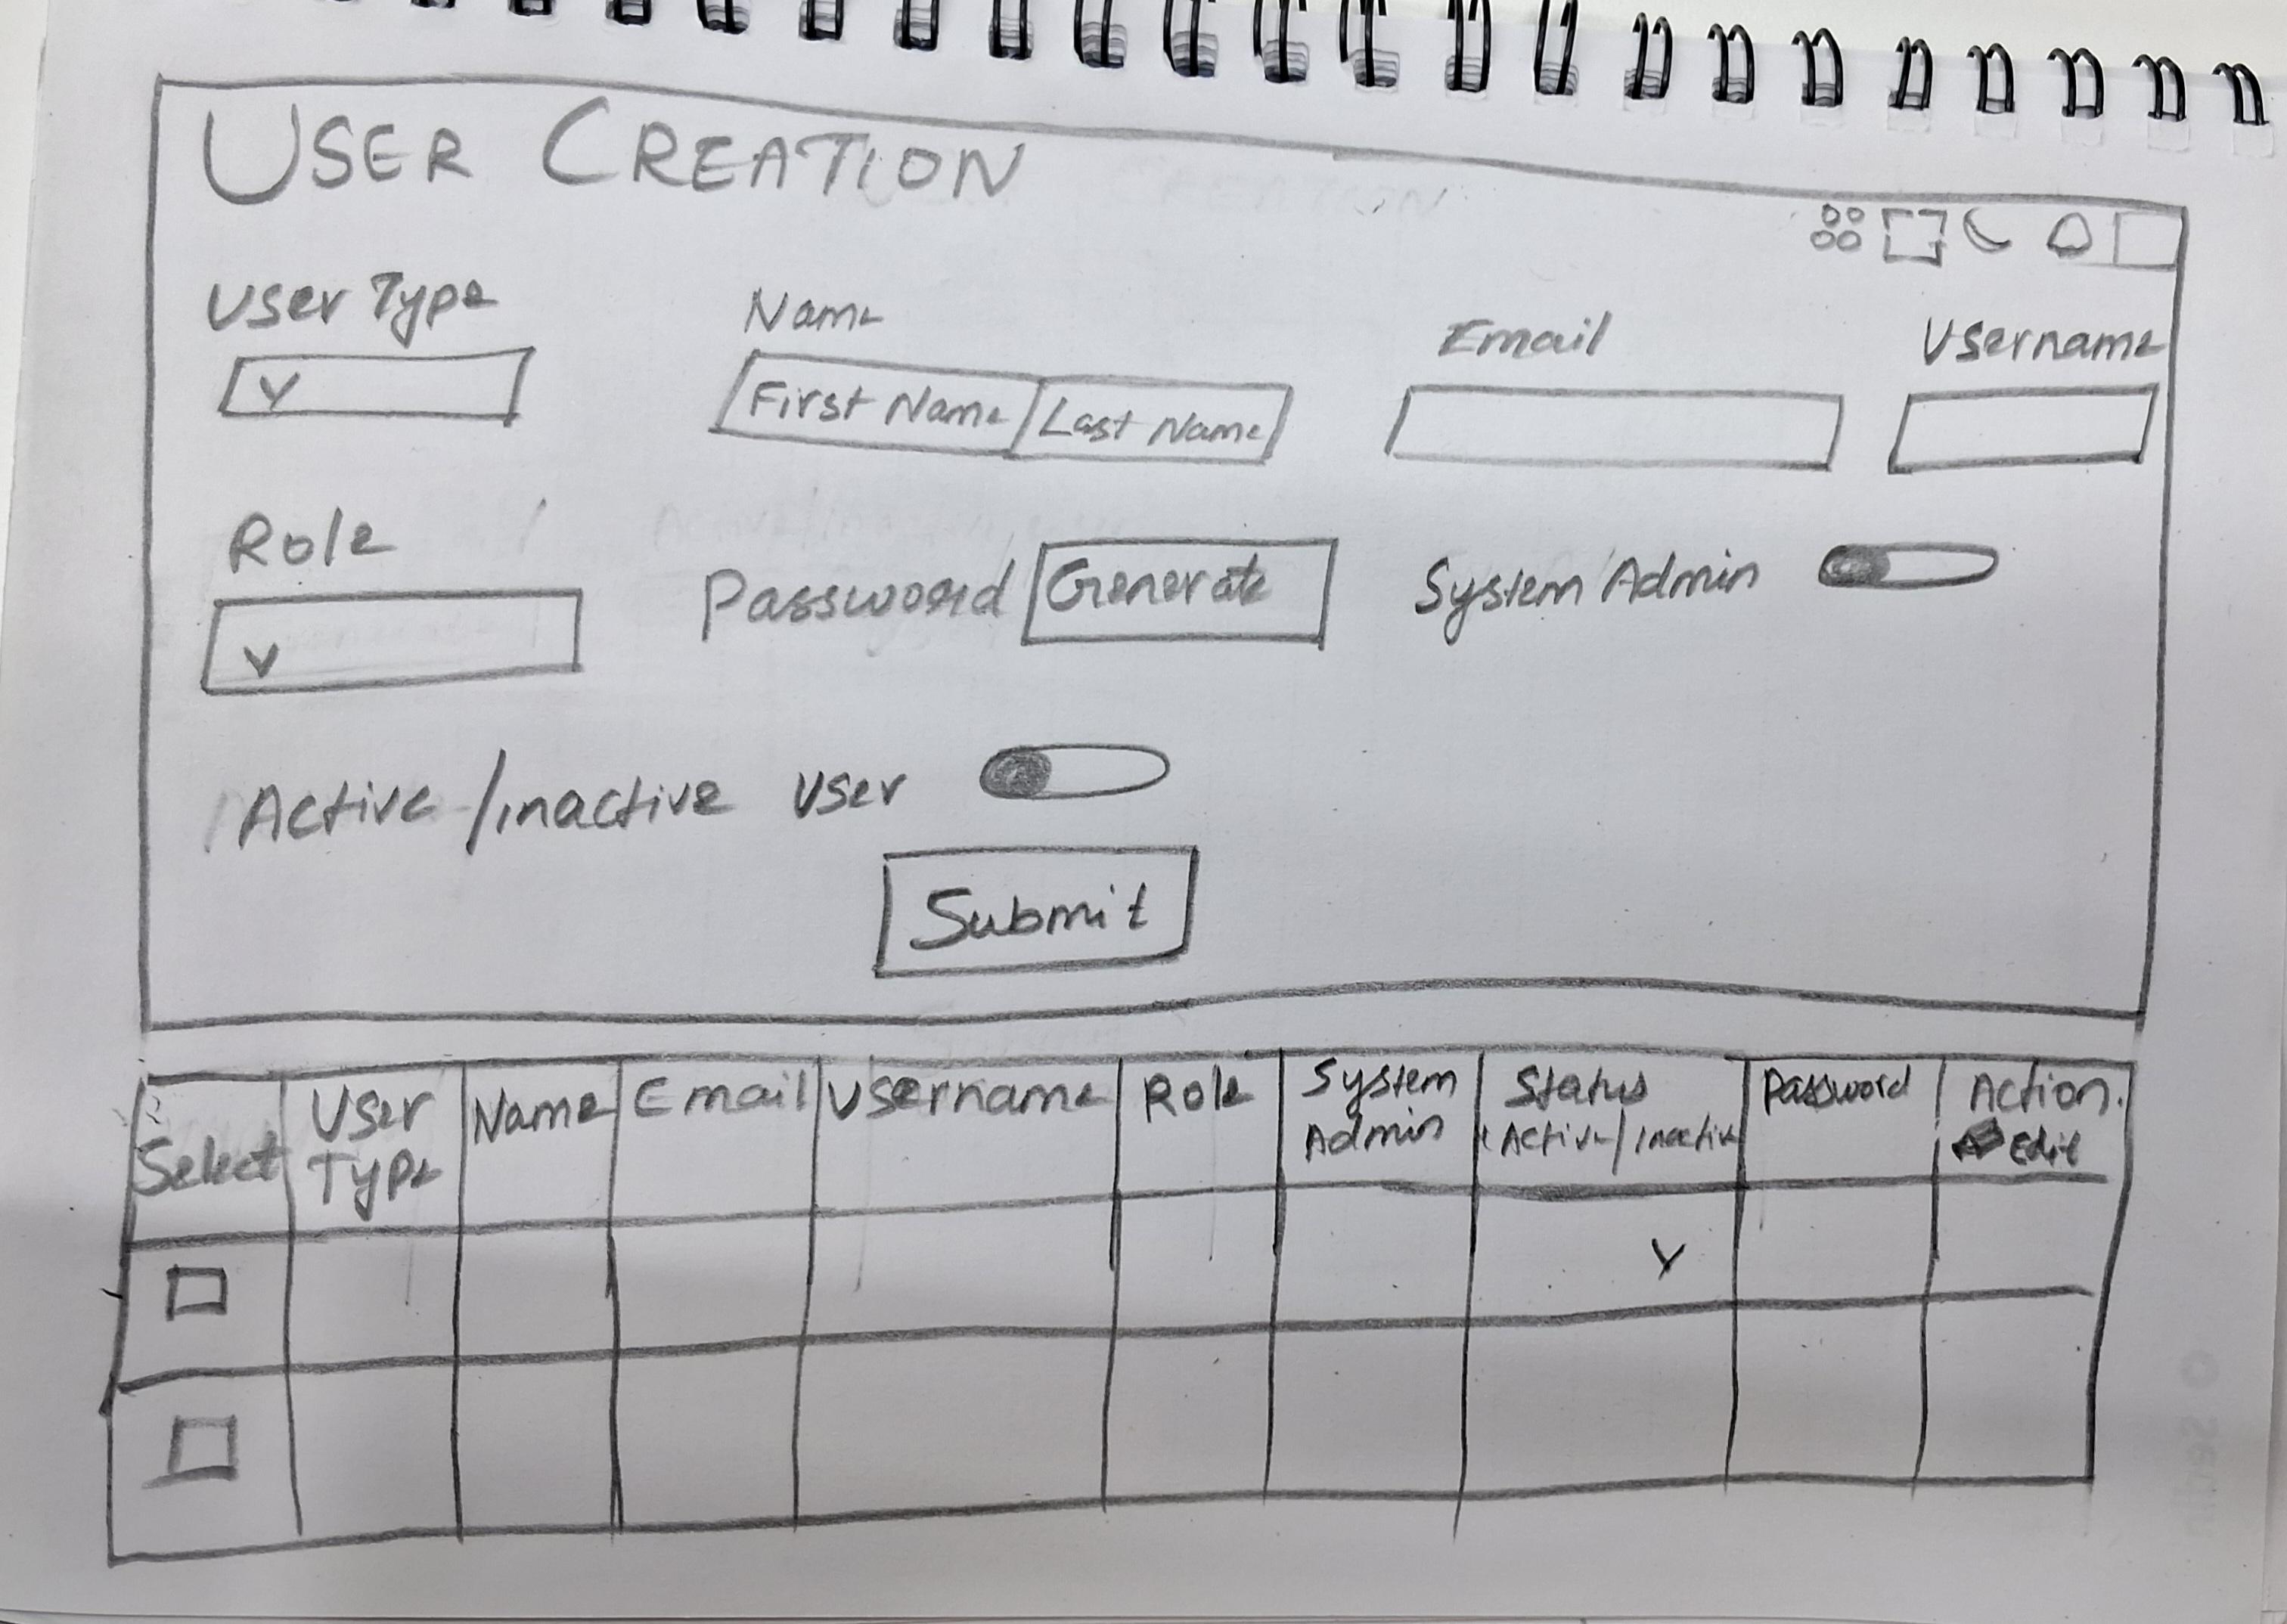 USER CREATION
User Type
Name
Email
Username
First Name
Last Name
Role
Password
Generate
System Admin
Active/inactive user
Submit
Select
User
Type
Name
Email
Username
Role
System
Admin
Status
(Active/Inactive
Password
Action.
Edit